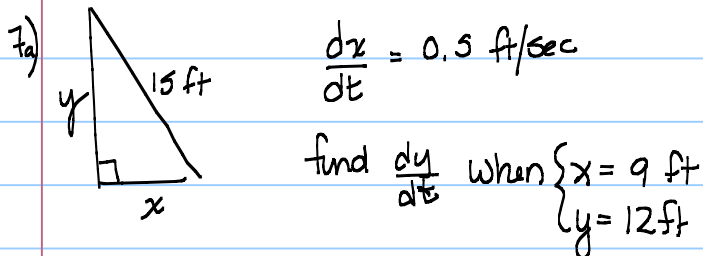 7a)
15 ft
y
x
dx/dt = 0.5 ft/sec
find dy/dt when { x = 9 ft
y = 12 ft